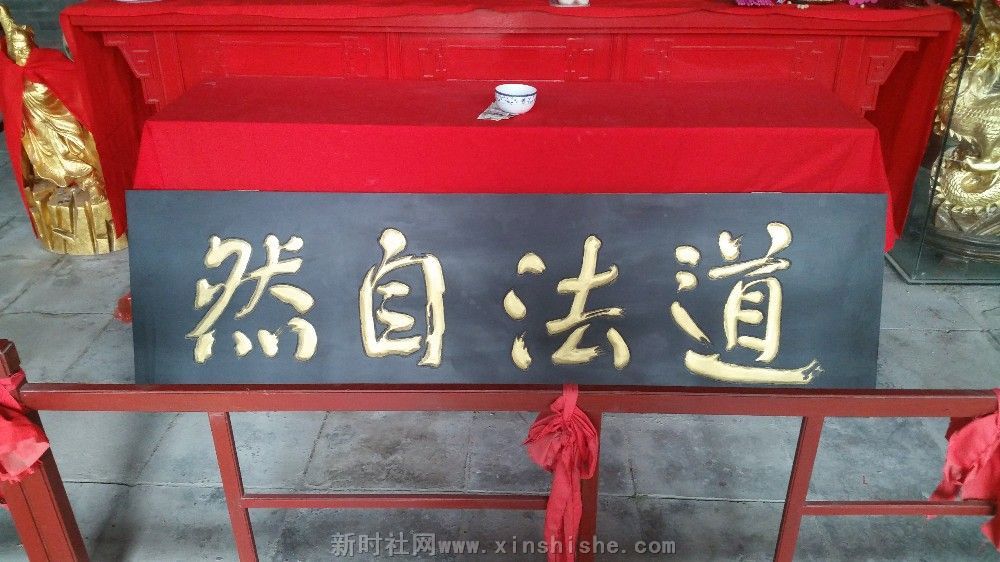 道法自然
新时社网www.xinshishe.com